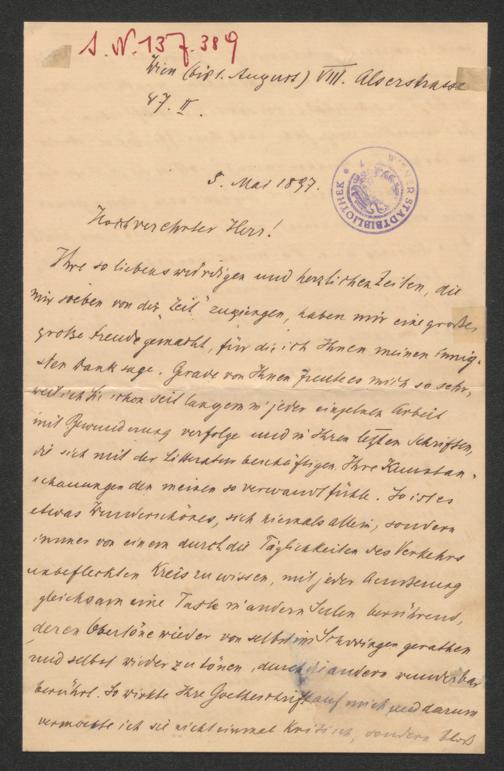 J. N. 137.389
Wien (bis 1. August) VIII. Alserstrasse
47. II.
WIENER STADTBIBLIOTHEK
5. Mai 1897.
Hochverehrter Herr!
Ihre so liebenswürdigen und herzlichen Zeilen, die
mir soeben von der „Zeit“ zugiengen, haben mir eine große,
große Freude gemacht, für die ich Ihnen meinen innig-
sten Dank sage. Grade von Ihnen freut es mich so sehr,
weil ich Sie schon seit langem in jeder einzelnen Arbeit
mit Bewunderung verfolge und in Ihren letzten Schriften,
die sich mit der Litteratur beschäftigen, Ihre Kunstan-
schauungen den meinen so verwandt fühle. So ist es
etwas Wunderschönes, sich niemals allein, sondern
immer von einem durch die Täglichkeiten des Verkehrs
unbefleckten Kreis zu wissen, mit jeder Aeußerung
gleichsam eine Taste in andern Seelen berührend,
deren Obertöne wieder von selbst ins Schwingen gerathen
und selbst wieder zu tönen, durch die andern wunderbar
berührt. So wirkte Ihre Goetheschrift auf mich und darum
vermochte ich sie nicht einmal kritisch, sondern bloß